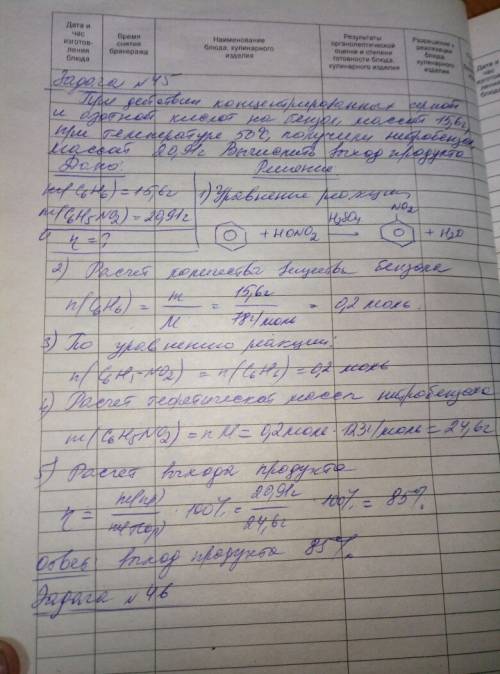 Дата и час изготов- ления блюда
Время снятия бракеража
Наименование блюда, кулинарного изделия
Результаты органолептической оценки и степени готовности блюда, кулинарного изделия
Разрешение к реализации блюда, кулинарного изделия
Дата и
Задача №45
При действии концентрированных серной
и азотной кислот на бензол массой 15,6г,
при температуре 50°С, получили нитробензол
массой 20,91г Вычислить выход продукта
Дано: Решение
m(C6H6) = 15,6г 1) Уравнение реакции
m(C6H5-NO2) = 20,91г
η = ? + HONO2 H2SO4 → NO2 + H2O
2) Расчет количества вещества бензола
n(C6H6) = m/M = 15,6г/78г/моль = 0,2 моль
3) По уравнению реакции:
n(C6H5-NO2) = n(C6H6) = 0,2 моль
4) Расчет теоретической массы нитробензола
m(C6H5NO2) = n·M = 0,2моль · 123г/моль = 24,6г
5) Расчет выхода продукта
η = m(пр)/m(теор) · 100% = 20,91г/24,6г · 100% = 85%
Ответ: выход продукта 85%.
Задача №46